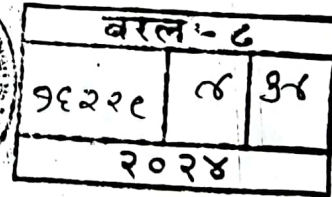 बरल - ८
१६२२९ ४ ३४
२०२४